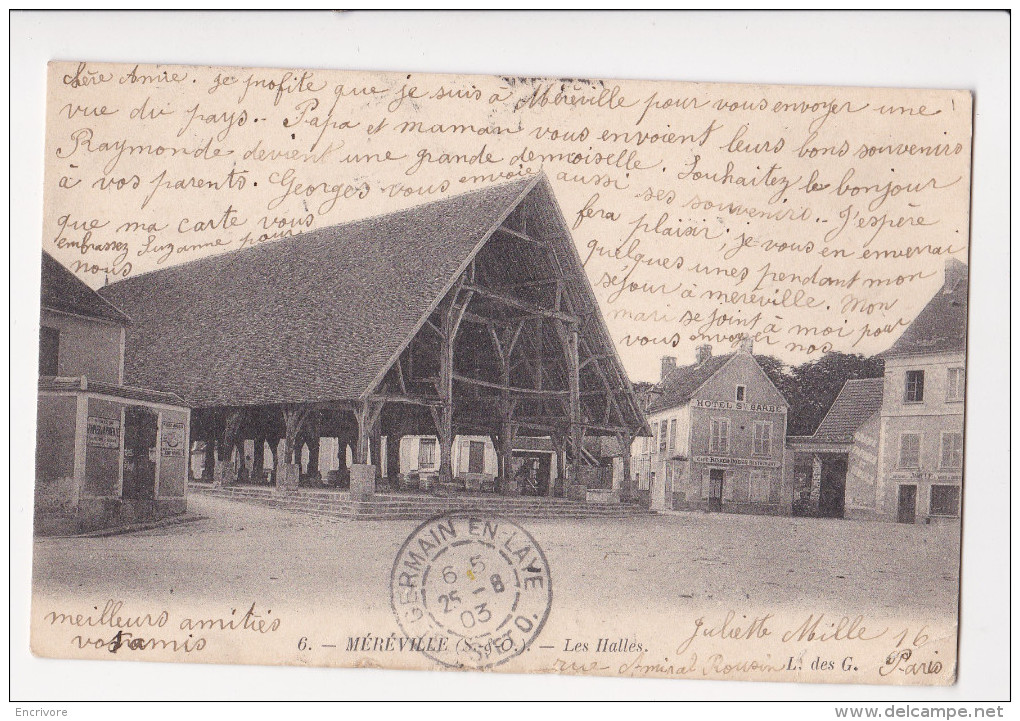 chère Amie. je profite que je suis à Méréville pour vous envoyer une
vue du pays.. Papa et maman vous envoient leurs bons souvenirs
Raymonde devient une grande demoiselle. Souhaitez le bonjour
à vos parents. Georges vous envoie aussi ses souvenirs.. J'espère
que ma carte vous fera plaisir; je vous en enverrai
embrassez Suzanne pour quelques unes pendant mon
nous séjour à méréville. Mon
mari se joint à moi pour
vous envoyer nos
HOTEL Ste BARBE
GERMAIN EN-LAYE
6 5
25 - 8
03
meilleurs amitiés
vos amis
Juliette Mille 16
6. - MÉRÉVILLE (S.-&-O.). - Les Halles.
L. des G.
rue Amiral Roussin Paris
Encrivore
www.delcampe.net